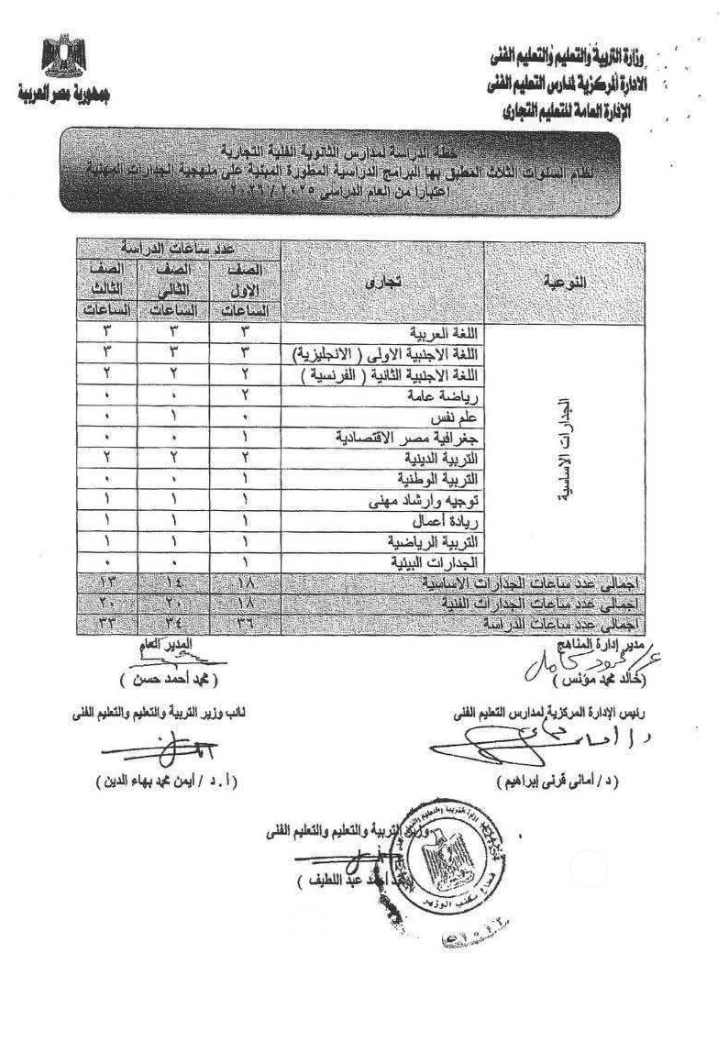 وزارة التربية والتعليم والتعليم الفنى
الادارة المركزية لمدارس التعليم الفنى
الإدارة العامة للتعليم التجارى
جمهورية مصر العربية
خطة الدراسة لمدارس الثانوية الفنية التجارية
نظام السنوات الثلاث المطبق بها البرامج الدراسية المطورة المبنية على منهجية الجدارات المهنية
اعتبارا من العام الدراسى ٢٠٢٥ / ٢٠٢٦
النوعية تجارى عدد ساعات الدراسة
الصف الاول الصف الثانى الصف الثالث
الساعات الساعات الساعات
الجدارات الاساسية
اللغة العربية ٣ ٣ ٣
اللغة الاجنبية الاولى ( الانجليزية) ٣ ٣ ٣
اللغة الاجنبية الثانية ( الفرنسية ) ٢ ٢ ٢
رياضة عامة ٢ ٠ ٠
علم نفس ٠ ١ ٠
جغرافية مصر الاقتصادية ١ ٠ ٠
التربية الدينية ٢ ٢ ٢
التربية الوطنية ١ ٠ ٠
توجيه وارشاد مهنى ١ ١ ١
ريادة أعمال ١ ١ ١
التربية الرياضية ١ ١ ١
الجدارات البيئية ١ ٠ ٠
اجمالى عدد ساعات الجدارات الاساسية ١٨ ١٤ ١٣
اجمالى عدد ساعات الجدارات الفنية ١٨ ٢٠ ٢٠
اجمالى عدد ساعات الدراسة ٣٦ ٣٤ ٣٣
مدير إدارة المناهج
(خالد محمد مؤنس )
المدير العام
( محمد أحمد حسن )
رئيس الإدارة المركزية لمدارس التعليم الفنى
( د / أمانى قرنى إبراهيم )
نائب وزير التربية والتعليم والتعليم الفنى
( أ . د / أيمن محمد بهاء الدين )
وزير التربية والتعليم والتعليم الفنى
أحمد عبد اللطيف )
قطاع مكتب الوزير